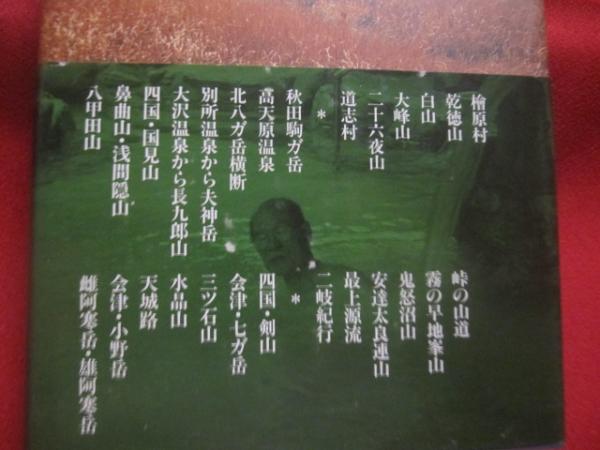 檜原村
乾徳山
白山
大峰山
二十六夜山
道志村
*
秋田駒ガ岳
高天原温泉
北八ガ岳横断
別所温泉から夫神岳
大沢温泉から長九郎山
四国・国見山
鼻曲山・浅間隠山
八甲田山
峠の山道
霧の早池峯山
鬼怒沼山
安達太良連山
最上源流
二岐紀行
*
四国・剣山
会津・七ガ岳
三ツ石山
水晶山
天城路
会津・小野岳
雌阿寒岳・雄阿寒岳